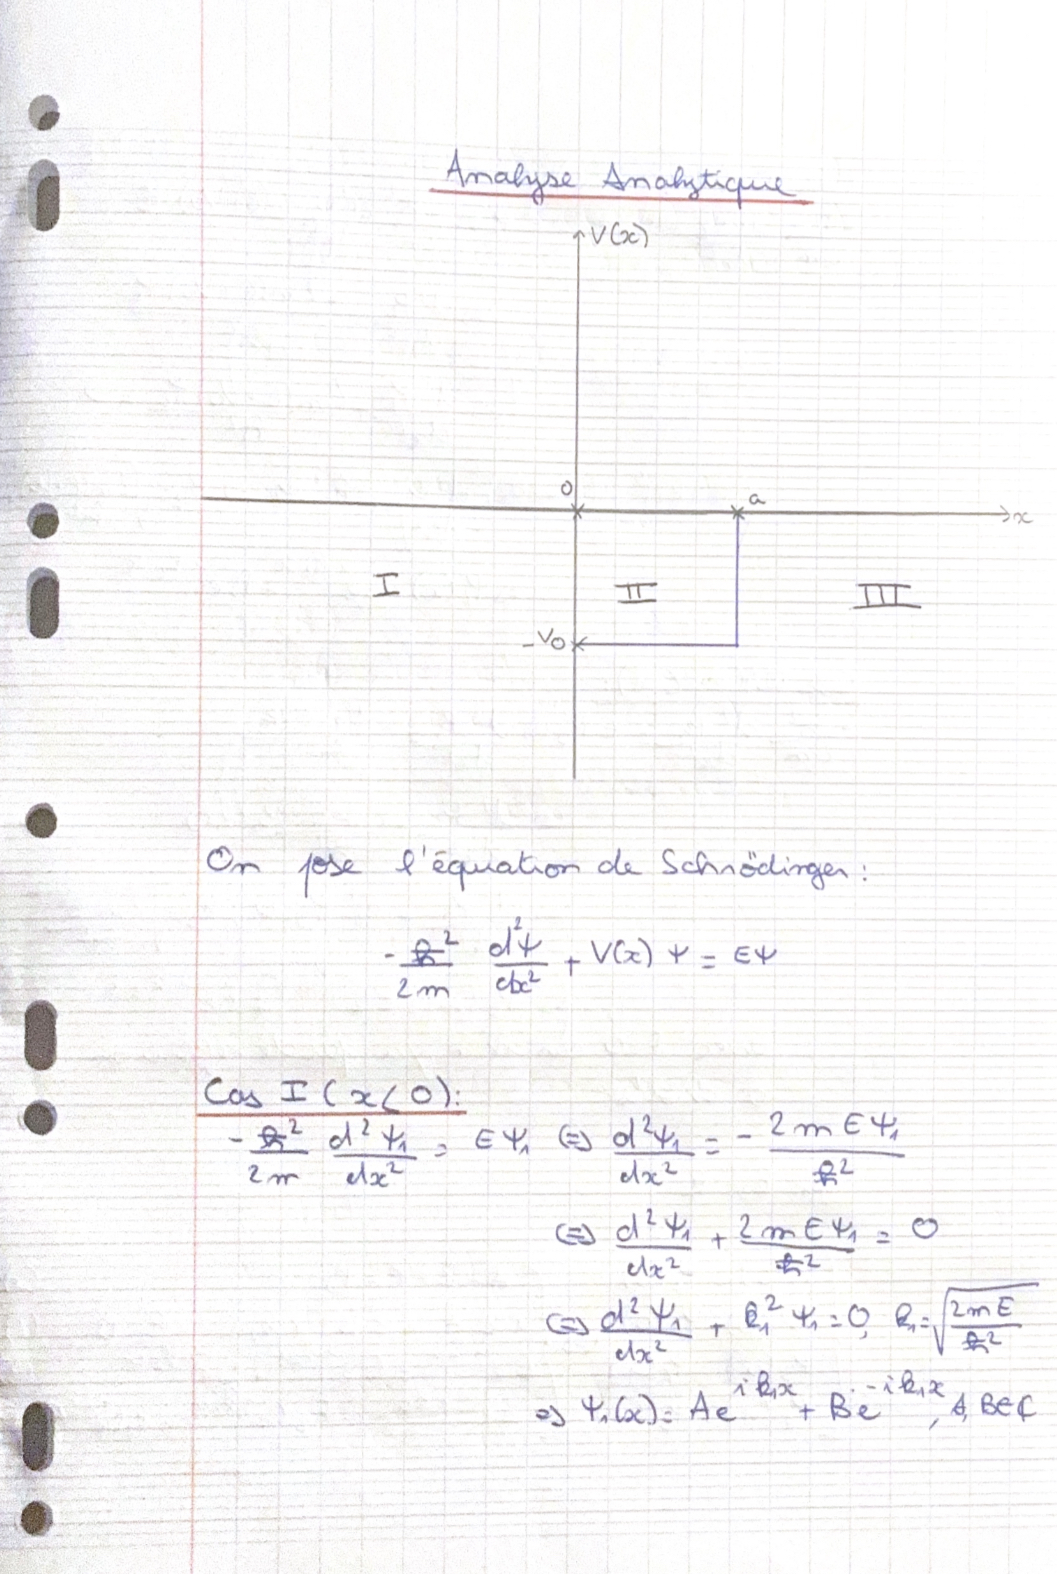 Analyse Analytique
V(x)
0 a
x
I II III
-V0
On pose l'équation de Schrödinger :
-ℏ²/2m d²Ψ/dx² + V(x) Ψ = EΨ
Cas I (x<0):
-ℏ²/2m d²Ψ₁/dx² = EΨ₁ (=) d²Ψ₁/dx² = - 2mEΨ₁/ℏ²
(=) d²Ψ₁/dx² + 2mEΨ₁/ℏ² = 0
(=) d²Ψ₁/dx² + k₁² Ψ₁ = 0, k₁ = √(2mE/ℏ²)
=> Ψ₁(x) = Ae^{ik₁x} + Be^{-ik₁x}, A, B ∈ ℂ